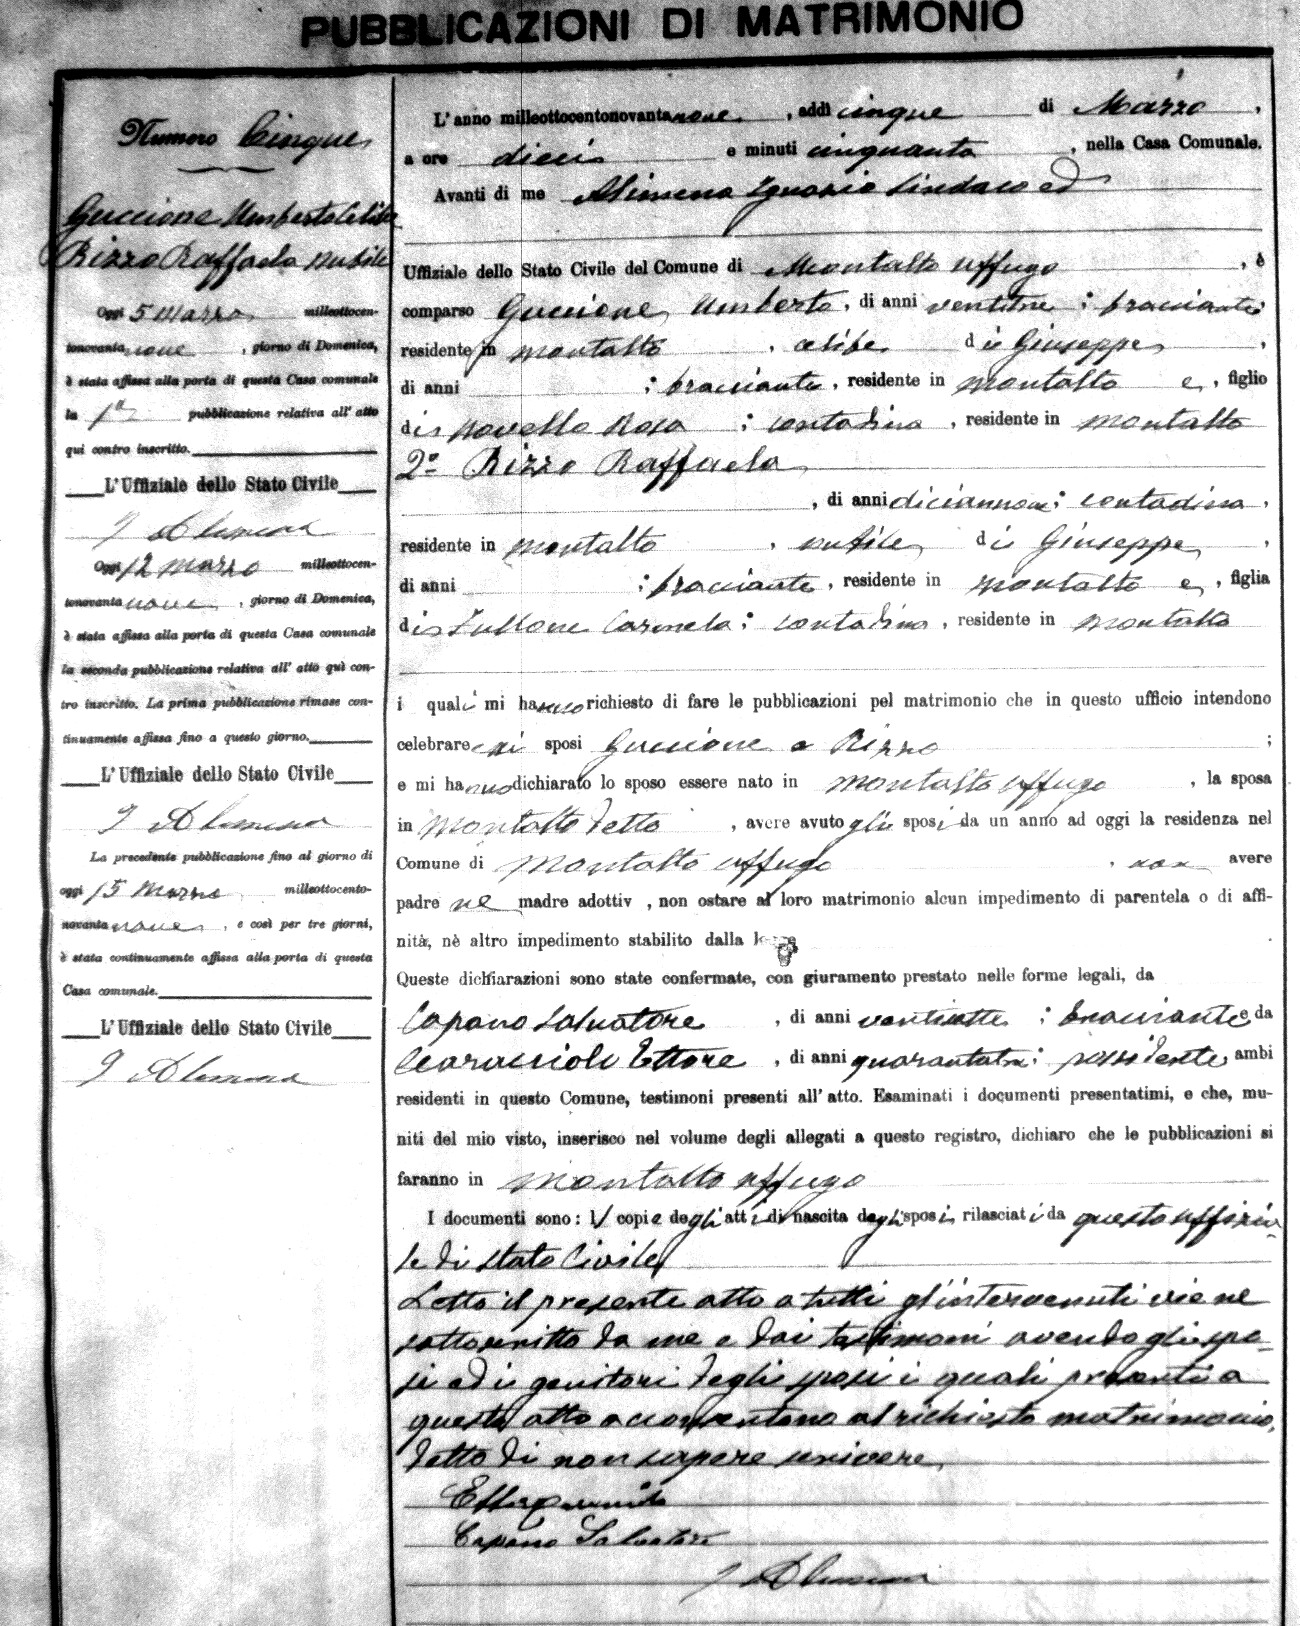 PUBBLICAZIONI DI MATRIMONIO
Numero Cinque
Guccione Umberto celibe
Rizzo Raffaela nubile
Oggi 5 Marzo milleottocen-
tonovanta nove, giorno di Domenica,
è stata affissa alla porta di questa Casa comunale
la 1a pubblicazione relativa all' atto
qui contro inscritto.
L'Uffiziale dello Stato Civile
I Alimena
Oggi 12 marzo milleottocen-
tonovanta nove, giorno di Domenica,
è stata affissa alla porta di questa Casa comunale
la seconda pubblicazione relativa all' atto quì con-
tro inscritto. La prima pubblicazione rimase con-
tinuamente affissa fino a questo giorno.
L'Uffiziale dello Stato Civile
I Alimena
La precedente pubblicazione fino al giorno di
oggi 15 Marzo milleottocento-
novanta nove, e così per tre giorni,
è stata continuamente affissa alla porta di questa
Casa comunale.
L'Uffiziale dello Stato Civile
I Alimena
L'anno milleottocentonovanta nove, addì cinque di Marzo,
a ore dieci e minuti cinquanta, nella Casa Comunale.
Avanti di me Alimena Ignazio Sindaco ed
Uffiziale dello Stato Civile del Comune di Montalto Uffugo, è
comparso Guccione Umberto, di anni ventitre; bracciante
residente in Montalto, celibe di Giuseppe,
di anni ; bracciante, residente in Montalto e, figlio
di Novello Rosa; contadina, residente in Montalto
2° Rizzo Raffaela
, di anni diciannove; contadina,
residente in Montalto, nubile di Giuseppe,
di anni ; bracciante, residente in Montalto e, figlia
di Fullone Carmela; contadina, residente in Montalto
i quali mi hanno richiesto di fare le pubblicazioni pel matrimonio che in questo ufficio intendono
celebrare essi sposi Guccione e Rizzo ;
e mi hanno dichiarato lo sposo essere nato in Montalto Uffugo, la sposa
in Montalto detto, avere avuto gli sposi da un anno ad oggi la residenza nel
Comune di Montalto Uffugo, non avere
padre ne madre adottiv , non ostare al loro matrimonio alcun impedimento di parentela o di affi-
nità, nè altro impedimento stabilito dalla legge
Queste dichiarazioni sono state confermate, con giuramento prestato nelle forme legali, da
Capano Salvatore, di anni ventisette; bracciante e da
Caraccioli Ettore, di anni quarantatre; possidente ambi
residenti in questo Comune, testimoni presenti all' atto. Esaminati i documenti presentatimi, e che, mu-
niti del mio visto, inserisco nel volume degli allegati a questo registro, dichiaro che le pubblicazioni si
faranno in Montalto Uffugo
I documenti sono: 1/ copie degli atti di nascita degli sposi rilasciati da questo uffizia-
le di stato Civile
Letto il presente atto a tutti gl'intervenuti viene
sottoscritto da me e dai testimoni avendo gli spo-
si ed i genitori degli sposi i quali presenti a
questo atto acconsentono al richiesto matrimonio,
detto di non sapere scrivere
Capano Salvatore
I Alimena